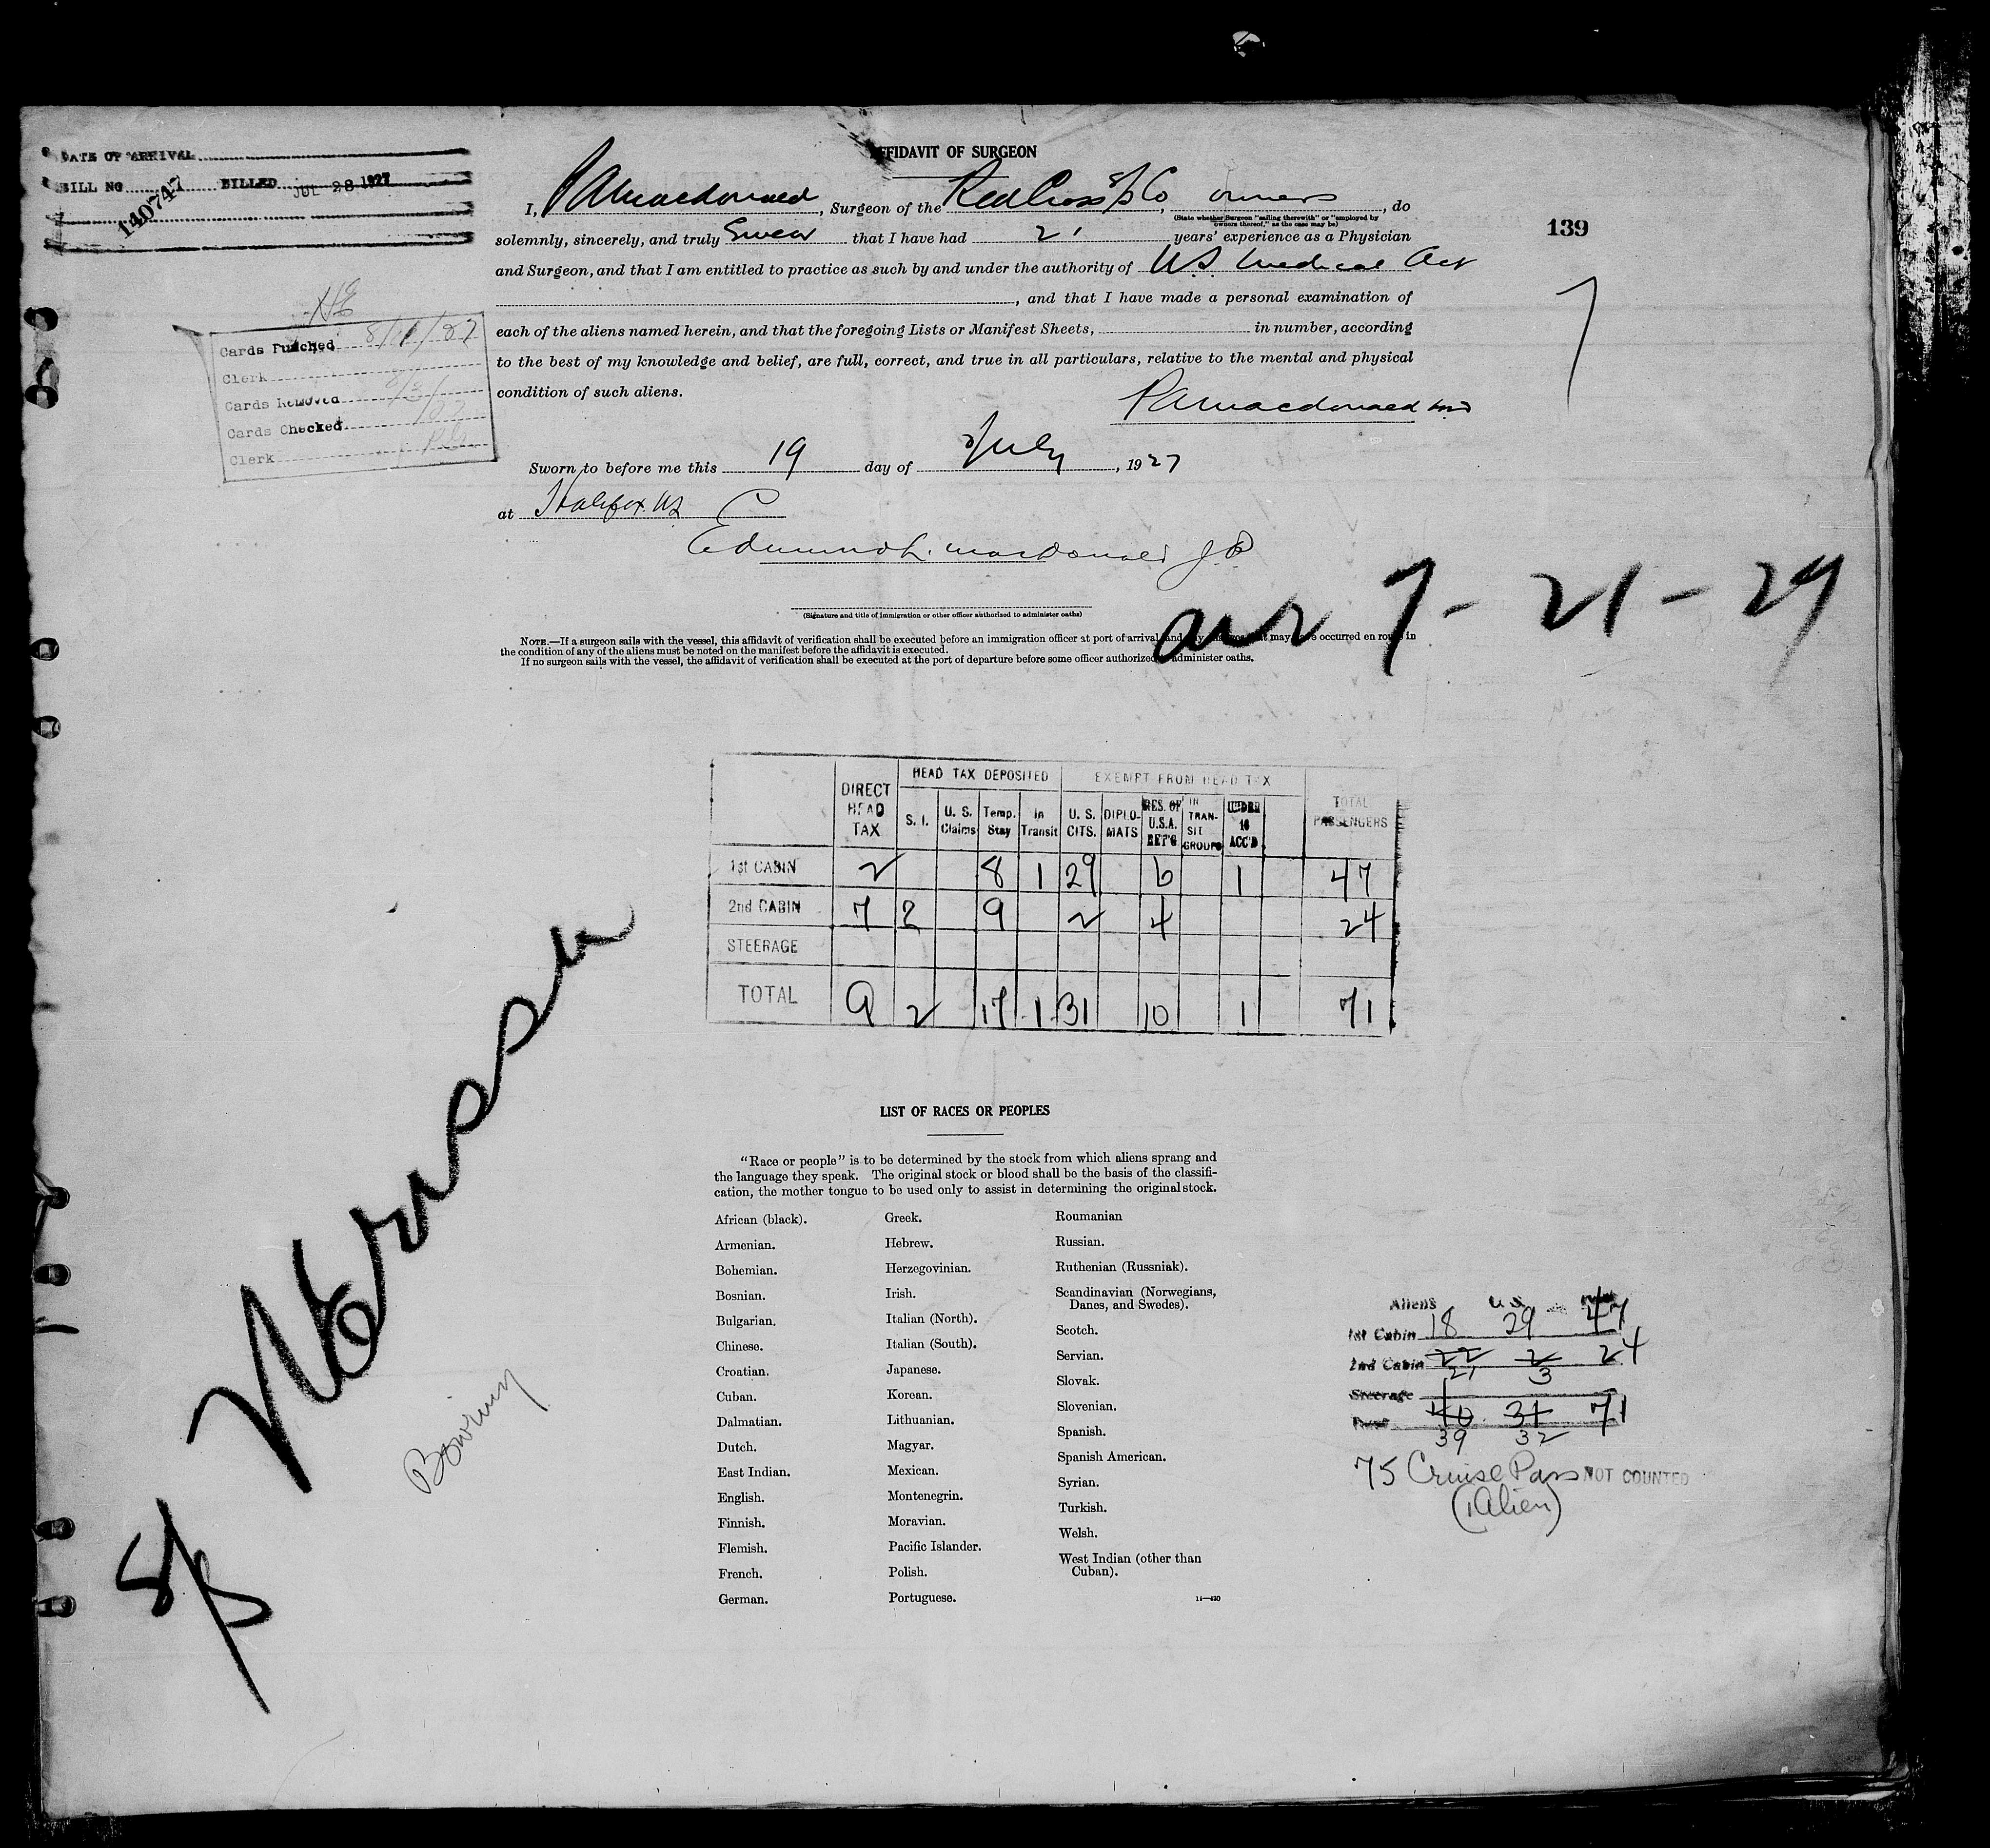 DATE OF ARRIVAL
BILL NO 140747 BILLED JUL 28 1927
Cards Punched
Clerk
Cards Removed
Cards Checked
Clerk
AFFIDAVIT OF SURGEON
I, PA Macdonald, Surgeon of the Red Cross S/S Co, owners, do
(State whether Surgeon "sailing therewith" or "employed by
owners thereof," as the case may be)
139
solemnly, sincerely, and truly Swear that I have had 21 years' experience as a Physician
and Surgeon, and that I am entitled to practice as such by and under the authority of N.S. Medical Act
, and that I have made a personal examination of
each of the aliens named herein, and that the foregoing Lists or Manifest Sheets, in number, according
to the best of my knowledge and belief, are full, correct, and true in all particulars, relative to the mental and physical
condition of such aliens.
PA Macdonald MD
Sworn to before me this 19 day of July, 1927
at Halifax NS
Edmund L. MacDonald J.P.
(Signature and title of immigration or other officer authorized to administer oaths)
arr 7-21-27
NOTE.—If a surgeon sails with the vessel, this affidavit of verification shall be executed before an immigration officer at port of arrival, and any changes that may have occurred en route in
the condition of any of the aliens must be noted on the manifest before the affidavit is executed.
If no surgeon sails with the vessel, the affidavit of verification shall be executed at the port of departure before some officer authorized to administer oaths.
HEAD TAX DEPOSITED EXEMPT FROM HEAD TAX
DIRECT HEAD TAX S. I. U. S. Claims Temp. Stay In Transit U. S. CITS. DIPLO-MATS RES. OF U.S.A. RET'G IN TRAN-SIT GROUPS UNDER 16 ACC'D TOTAL PASSENGERS
1st CABIN 2 8 1 29 6 1 47
2nd CABIN 7 2 9 2 4 24
STEERAGE
TOTAL 9 2 17 1 31 10 1 71
S/S Nerissa
Bowring
LIST OF RACES OR PEOPLES
"Race or people" is to be determined by the stock from which aliens sprang and
the language they speak. The original stock or blood shall be the basis of the classifi-
cation, the mother tongue to be used only to assist in determining the original stock.
African (black).
Armenian.
Bohemian.
Bosnian.
Bulgarian.
Chinese.
Croatian.
Cuban.
Dalmatian.
Dutch.
East Indian.
English.
Finnish.
Flemish.
French.
German.
Greek.
Hebrew.
Herzegovinian.
Irish.
Italian (North).
Italian (South).
Japanese.
Korean.
Lithuanian.
Magyar.
Mexican.
Montenegrin.
Moravian.
Pacific Islander.
Polish.
Portuguese.
Roumanian
Russian.
Ruthenian (Russniak).
Scandinavian (Norwegians,
Danes, and Swedes).
Scotch.
Servian.
Slovak.
Slovenian.
Spanish.
Spanish American.
Syrian.
Turkish.
Welsh.
West Indian (other than
Cuban).
Aliens U.S. Total
1st Cabin 18 29 47
2nd Cabin 22 2 24
21 3
Steerage
Total 40 31 71
39 32
75 Cruise Pass NOT COUNTED
(1 Alien)